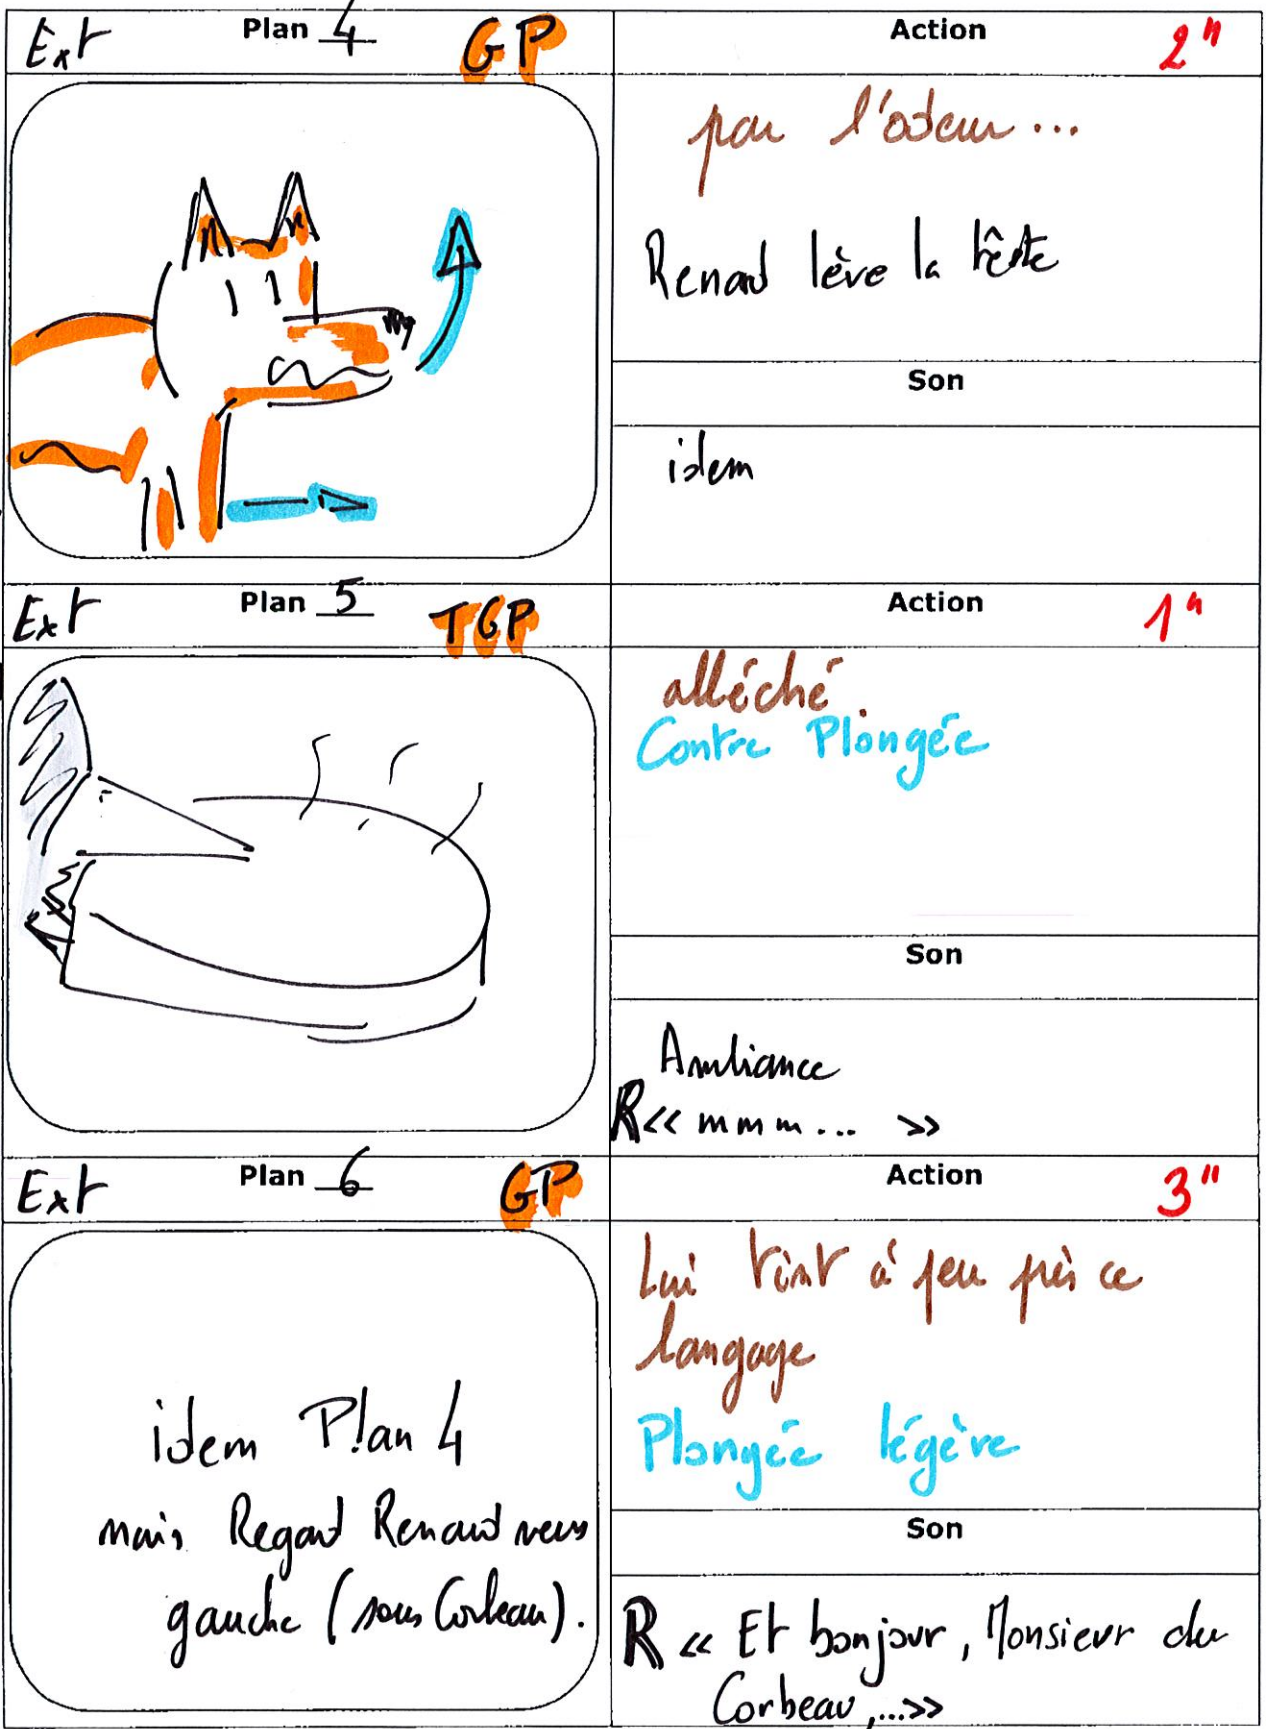 Ext Plan 4 GP Action 2"
par l'odeur...
Renard lève la tête
Son
idem
Ext Plan 5 TGP Action 1"
alléché.
Contre Plongée
Son
Ambiance
R << mmm... >>
Ext Plan 6 GP Action 3"
idem Plan 4
mais Regard Renard vers
gauche (sous Corbeau).
Lui tint à peu près ce
langage
Plongée légère
Son
R << Et bonjour, Monsieur du
Corbeau,...>>